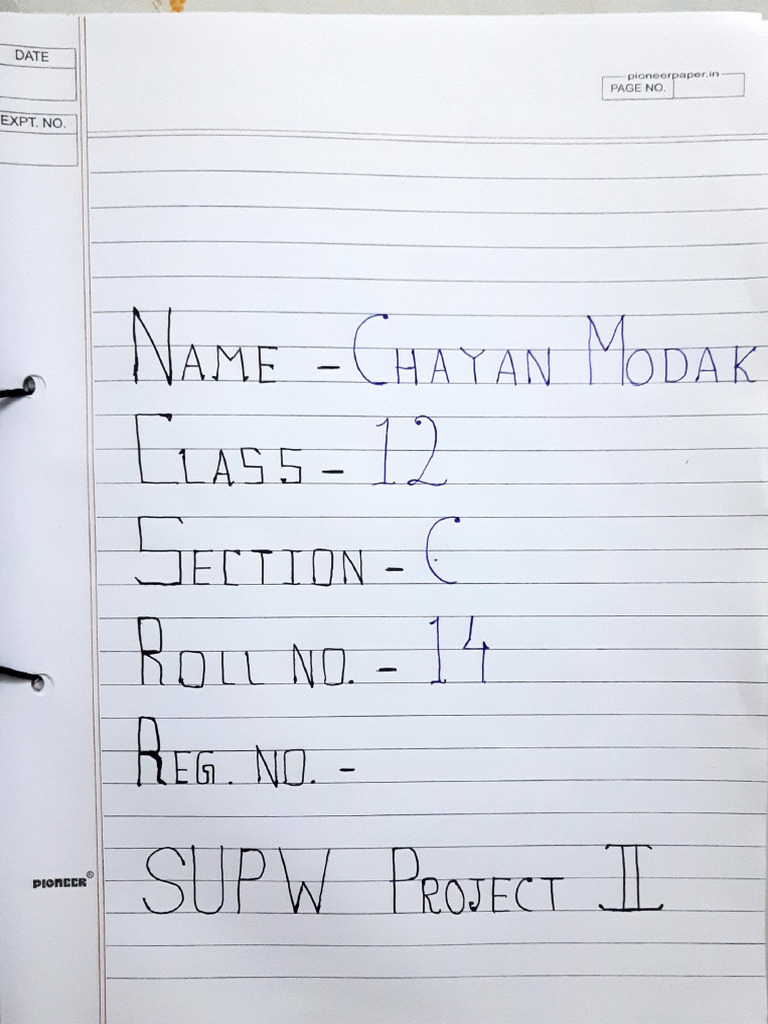 DATE
pioneerpaper.in
PAGE NO.
EXPT. NO.
NAME - CHAYAN MODAK
CLASS - 12
SECTION - C
ROLL NO. - 14
REG. NO. -
PIONEER®
SUPW PROJECT II